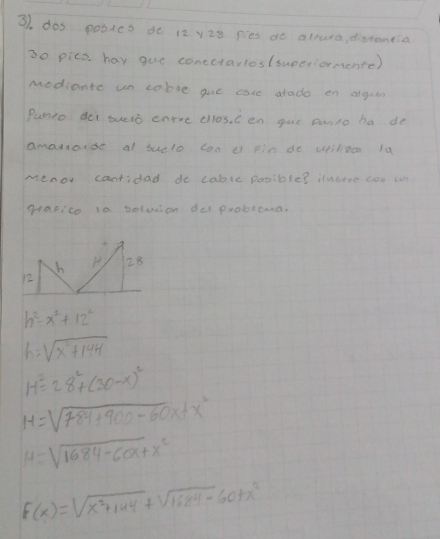 3). dos postes de 12 y 28 pies de altura, distancia
30 pies. hay que conectarlos (superiormente)
mediante un cable que este atado en algun
Punto del suelo entre ellos. ¿ en que punto ha de
amarrarse al suelo con el fin de utilizar la
menor cantidad de cable posible? ilustre con un
grafico la solucion del problema.
12 h H 28
h²=x²+12²
h=√x²+144
H²=28²+(30-x)²
H=√784+900-60x+x²
H=√1684-60x+x²
F(x)=√x²+144+√1684-60+x²